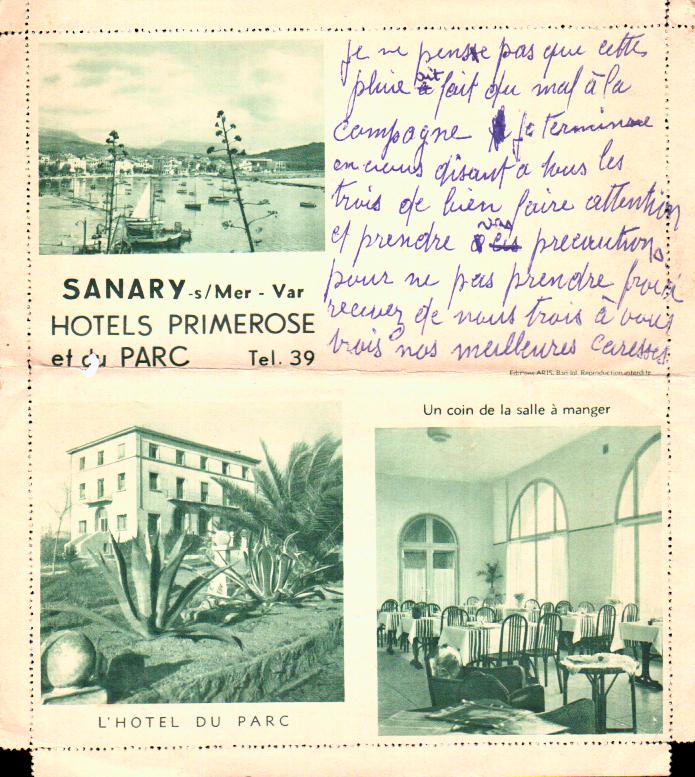 je ne pense pas que cette
pluie ait fait du mal à la
campagne je termine
en vous disant a tous les
trois de bien faire attention
et prendre vos precautions
pour ne pas prendre froid
recevez de nous trois à vous
trois nos meilleures caresses
SANARY-s/Mer - Var
HOTELS PRIMEROSE
et du PARC Tel. 39
Editions ARIS, Bandol. Reproduction interdite
Un coin de la salle à manger
L'HOTEL DU PARC